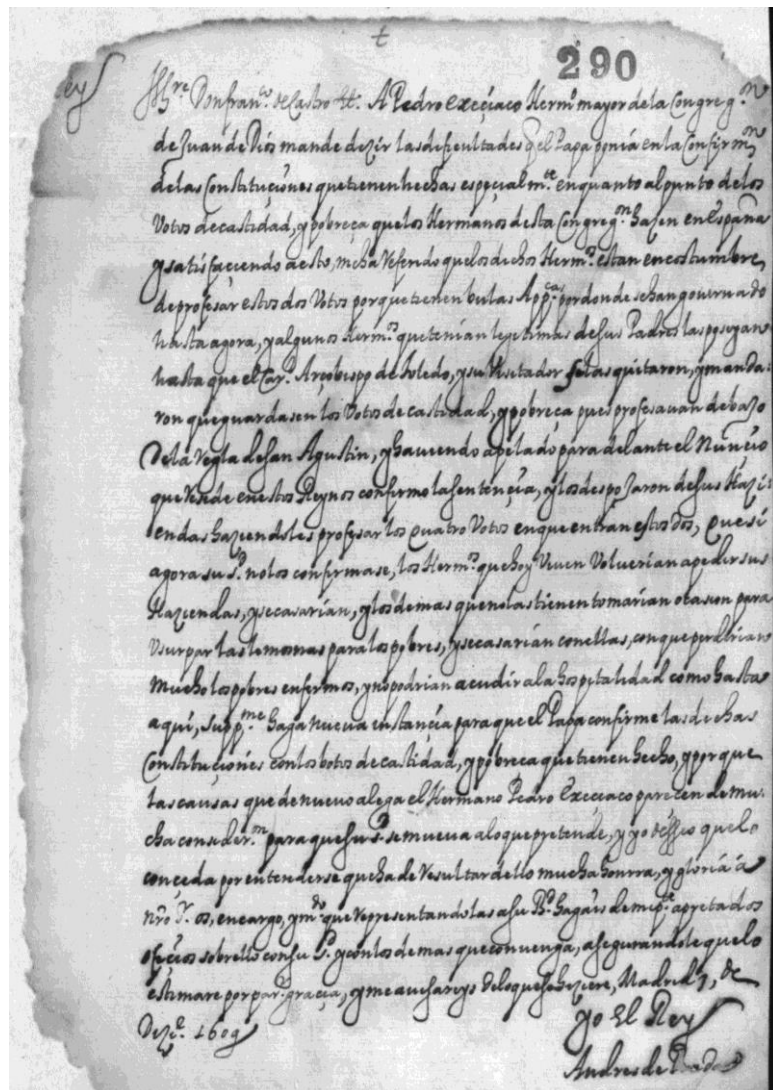 t
290
Rey
Ill.re Don fran.co de Castro &c. A Pedro execiaco Herm.o mayor de la Congreg.n
de Juan de Dios mande dezir las dificultades q el Papa ponia en la Confirm.n
de las Constituçiones que tienen hechas especialm.te en quanto al punto de los
Votos de castidad, y pobreça que los Hermanos desta Congreg.n hazen en España
y satisfaçiendo a esto, me ha Referido que los dichos Herm.os estan en costumbre
de profesar estos dos Votos porque tienen bulas App.cas por donde se han governado
hasta agora, y algunos Herm.os que tenian legitimas de sus Padres las poseyan
hasta que el Car.l Arçobispo de Toledo, y su Visitador se las quitaron, y manda-
ron que guardasen los Votos de castidad, y pobreça pues profesauan debazo
de la Regla de san Agustin, y hauiendo apelado para delante el Nunçio
que Reside en estos Reynos confirmo la sentençia, y los despozaron de sus Hazi-
endas haziendoles profesar los quatro Votos en que entran estos dos, Que si
agora su S.d no los confirmase, los Herm.os que hoy Viven Volverian a pedir sus
Haziendas, y se casarian, y los demas que no las tienen tomarian ocasion para
Vsurpar las lemosnas para los pobres, y se casarian con ellas, con que perdirian
mucho los pobres enfermos, y no podrian acudir a la hospitalidad como hasta
aqui, supp.me haga nueva instançia para que el Papa confirme las dichas
Constituçiones con los botos de castidad, y pobreca que tienen hecho, y porque
las causas que de nuevo alega el Hermano Pedro Execiaco pareçen de mu-
cha consider.on para que su S.d se mueva a lo que pretende, y yo desseo que lo
conçeda por entenderse que ha de Resultar dello mucha honrra, y gloria a
nro S.r os, encargo, y m.do que Representandolas a su B.d hagais de mi p.te apretados
ofiçios sobrello con su S.d y con los demas que convenga, asegurandole que lo
estimare por par.r graçia, y me auisareys de lo que se hiziere, Madrid 7, de
Dez.e 1609
yo El Rey
Andres de Prada